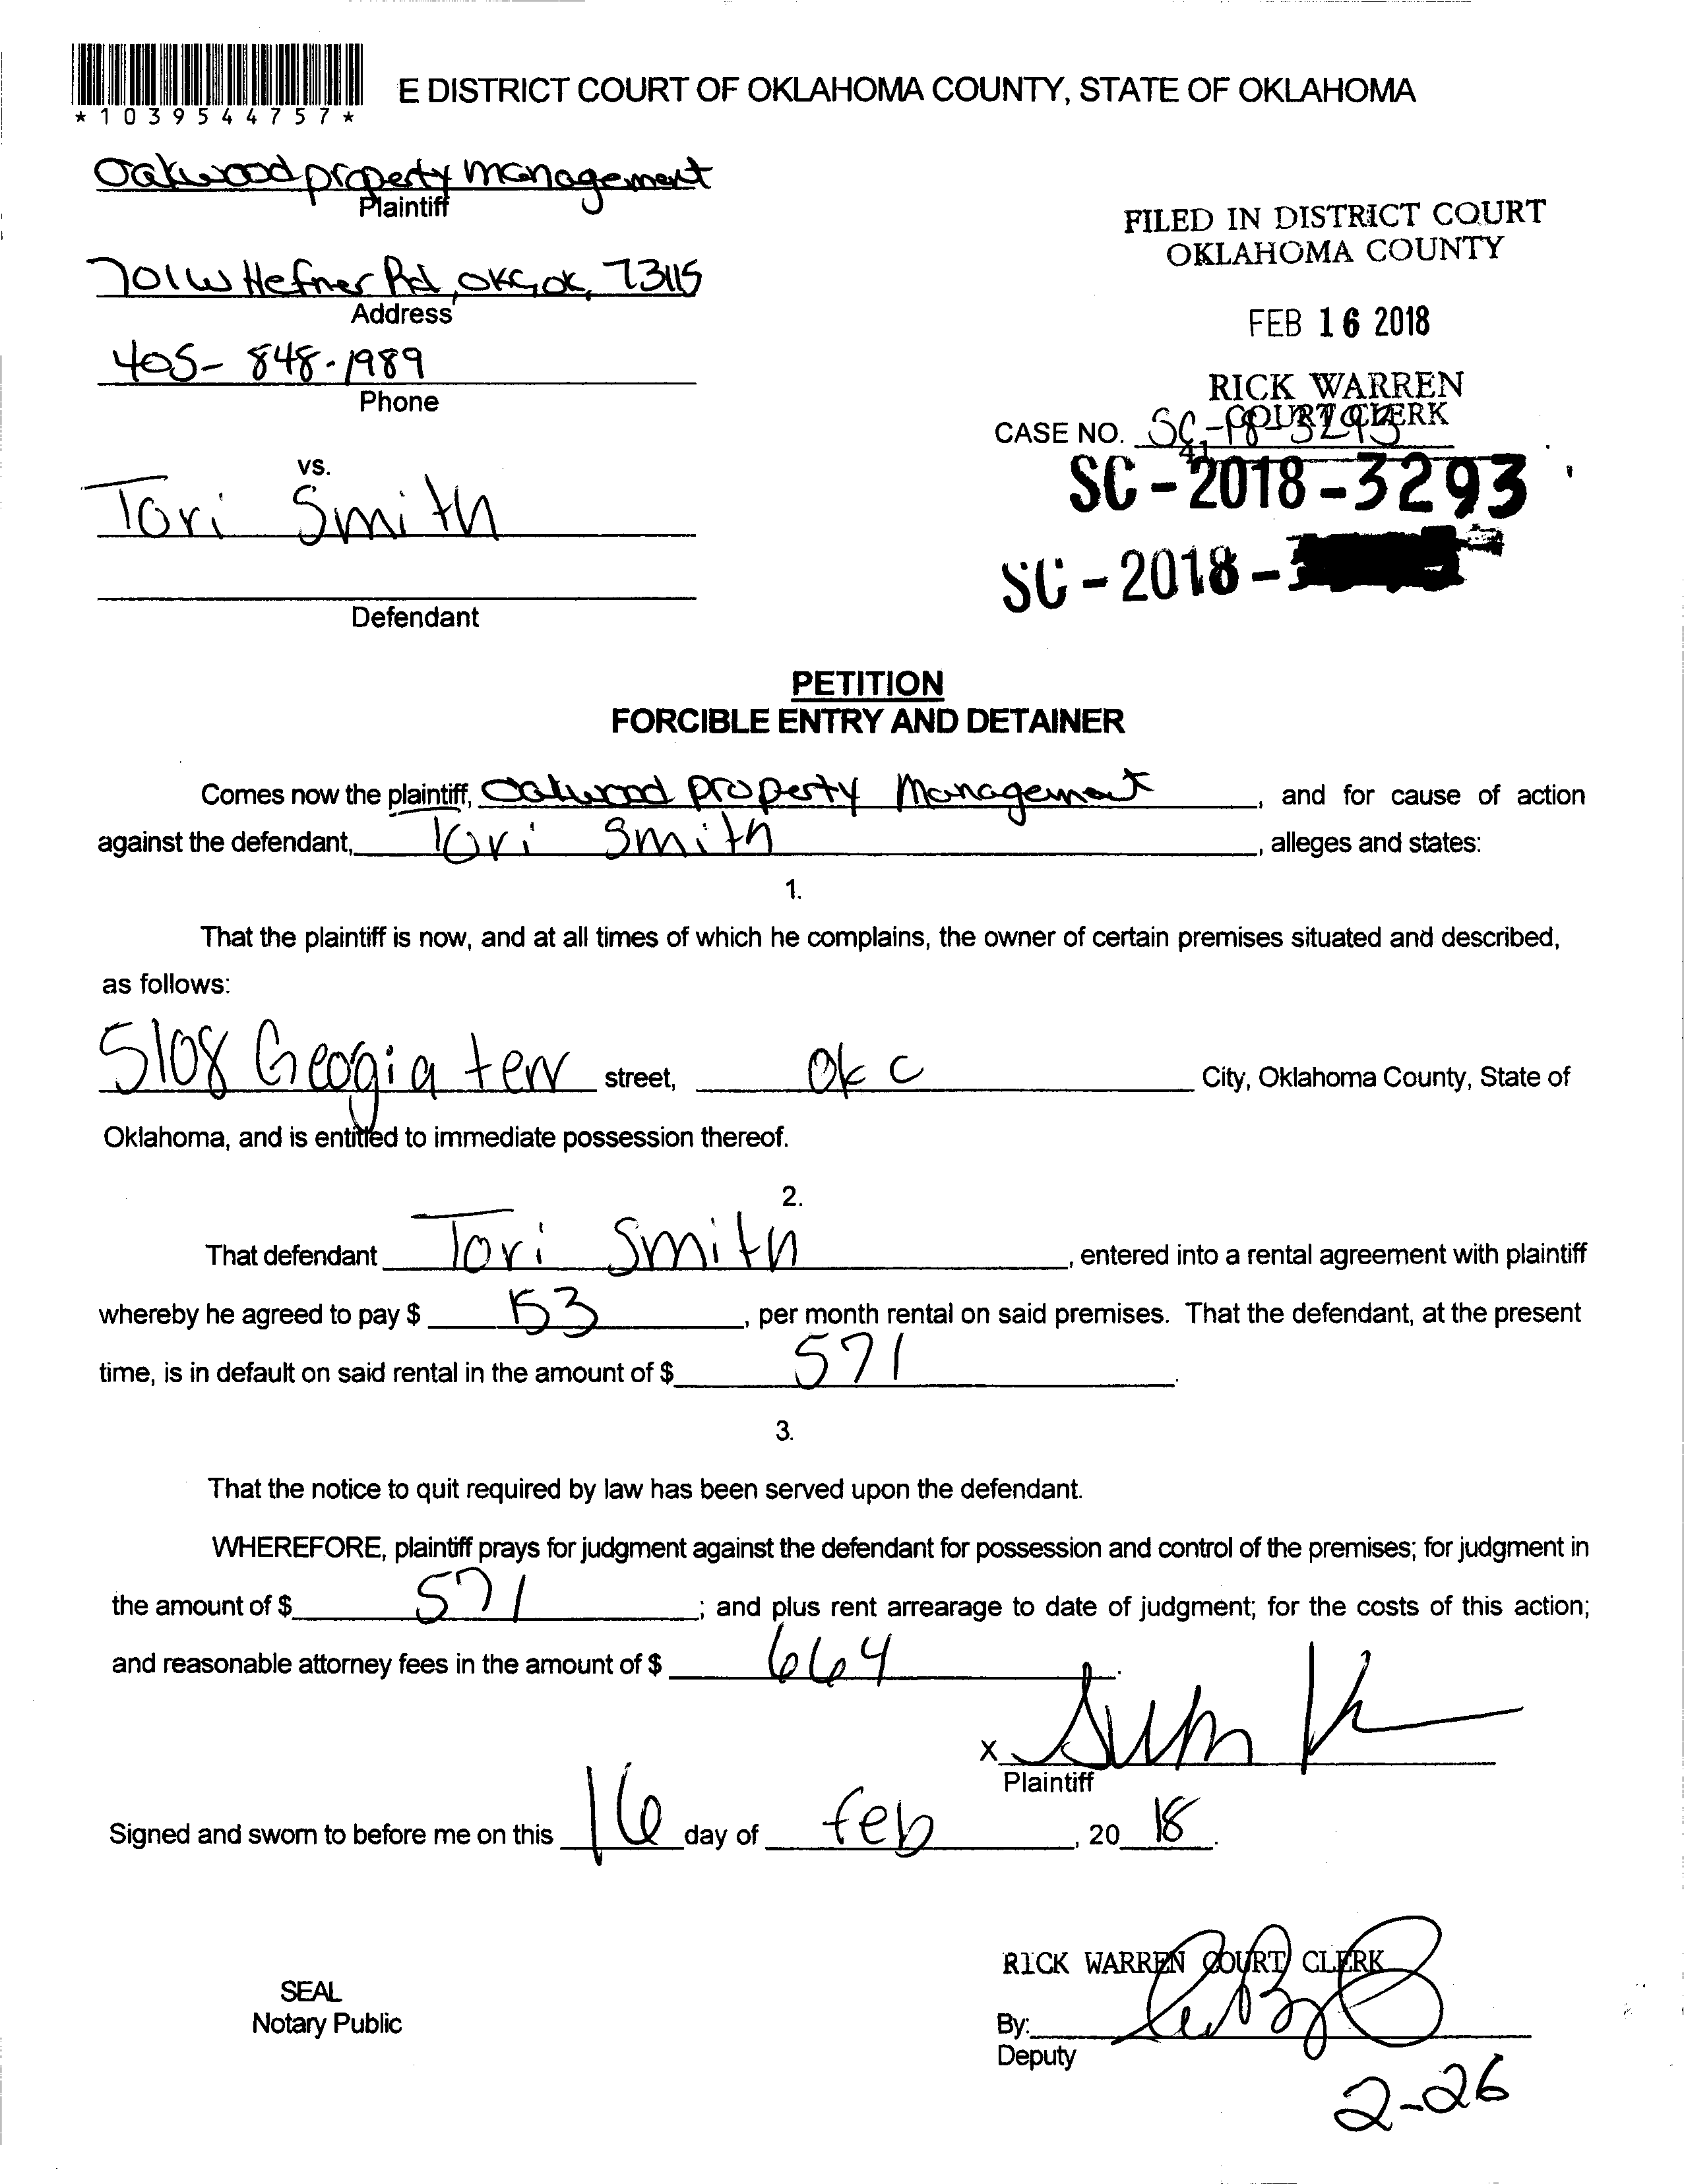 *1039544757*
E DISTRICT COURT OF OKLAHOMA COUNTY, STATE OF OKLAHOMA
Oakwood property management
Plaintiff
701 W Hefner Rd, OKC, OK, 73115
Address
405-848-1989
Phone
vs.
Tori Smith
Defendant
FILED IN DISTRICT COURT
OKLAHOMA COUNTY
FEB 16 2018
RICK WARREN
COURT CLERK
CASE NO. SC-18-3293
41
SC-2018-3293
SC-2018-
PETITION
FORCIBLE ENTRY AND DETAINER
Comes now the plaintiff, Oakwood property Management, and for cause of action
against the defendant, Tori Smith, alleges and states:
1.
That the plaintiff is now, and at all times of which he complains, the owner of certain premises situated and described,
as follows:
5108 Geogia terr street, Okc City, Oklahoma County, State of
Oklahoma, and is entitled to immediate possession thereof.
2.
That defendant Tori Smith, entered into a rental agreement with plaintiff
whereby he agreed to pay $ 153, per month rental on said premises. That the defendant, at the present
time, is in default on said rental in the amount of $ 571.
3.
That the notice to quit required by law has been served upon the defendant.
WHEREFORE, plaintiff prays for judgment against the defendant for possession and control of the premises; for judgment in
the amount of $ 571; and plus rent arrearage to date of judgment; for the costs of this action;
and reasonable attorney fees in the amount of $ 664.
X
Plaintiff
Signed and sworn to before me on this 16 day of feb, 20 18.
RICK WARREN COURT CLERK
SEAL
Notary Public
By:
Deputy
2-26